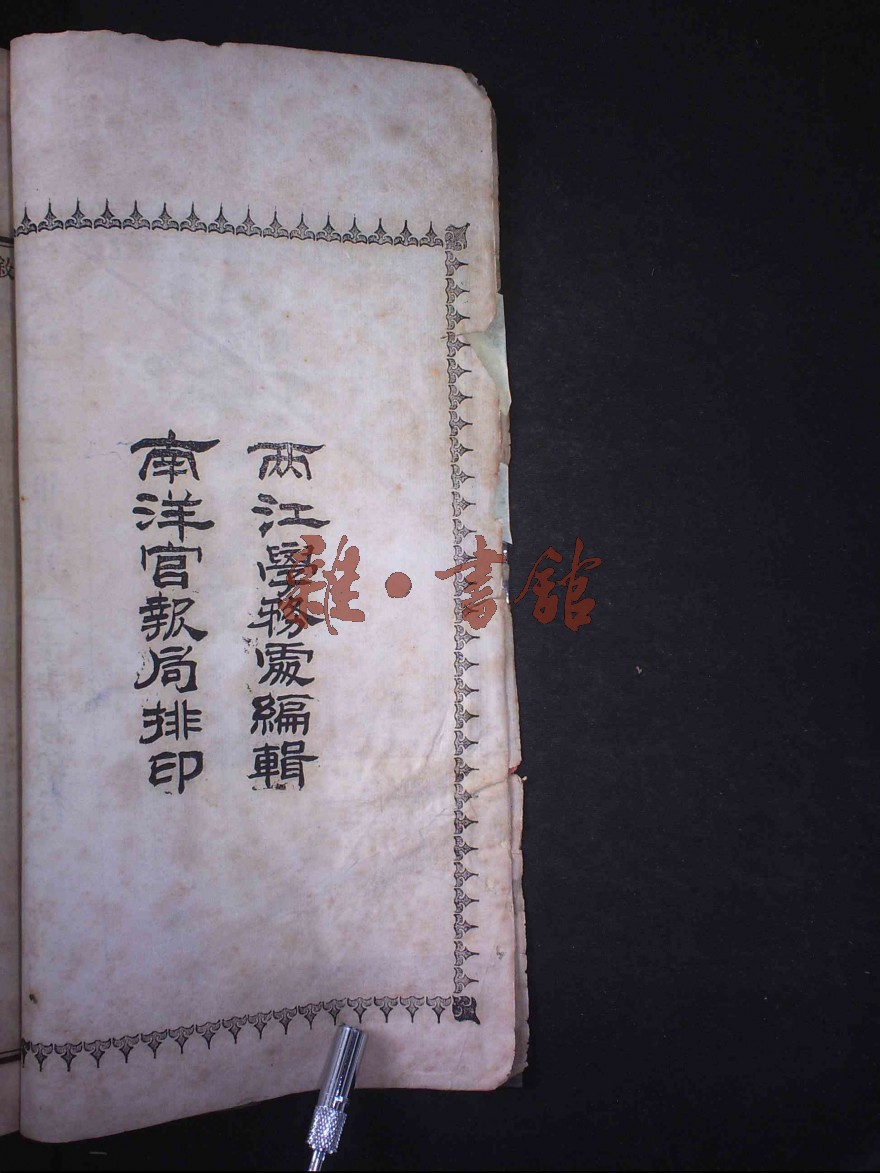 兩江學務處編輯
南洋官報局排印
雜·書館